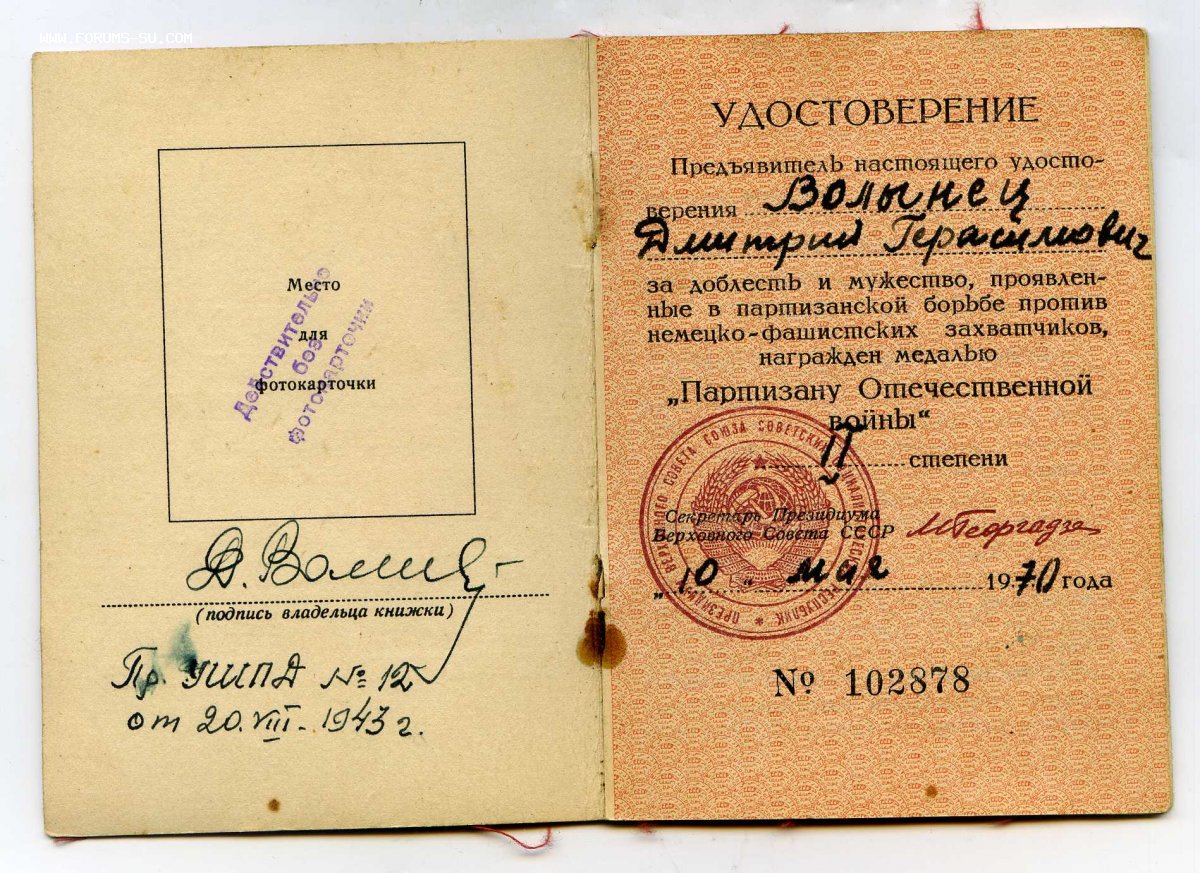 www.forums-su.com
Место
для
фотокарточки
Действительно
без
фотокарточки
Д. Волинец
(подпись владельца книжки)
Пр. УШПД № 12
от 20.VIII-1943 г.
УДОСТОВЕРЕНИЕ
Предъявитель настоящего удосто-
верения Волынец
Дмитрий Герасимович
за доблесть и мужество, проявлен-
ные в партизанской борьбе против
немецко-фашистских захватчиков,
награжден медалью
„Партизану Отечественной
войны“
II степени
Секретарь Президиума
Верховного Совета СССР МГеоргадзе
„10“ мая 1970 года
№ 102878